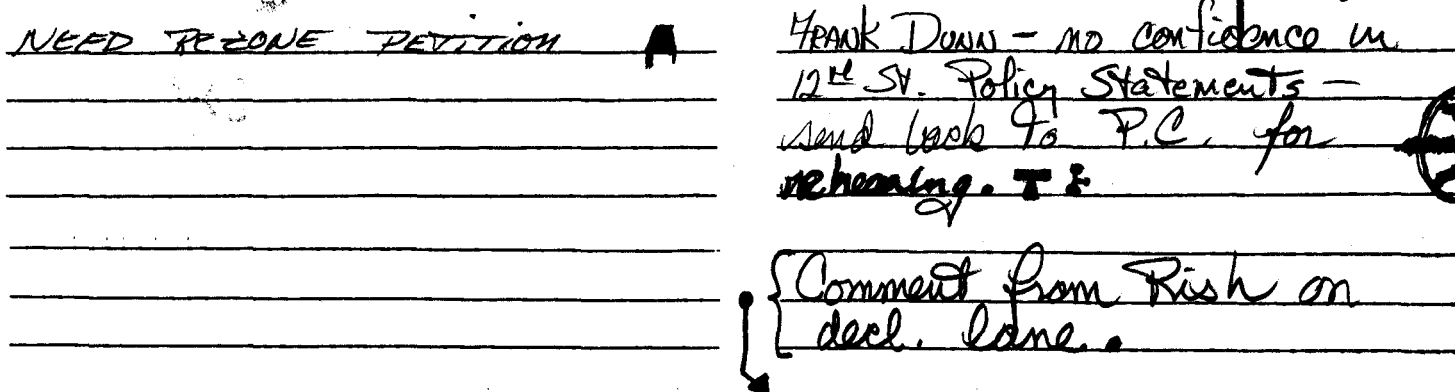 NEED REZONE PETITION
FRANK DUNN - no confidence in
12th St. Policy Statements -
send back to P.C. for
rehearing.
Comment from Rish on
decl. lane.